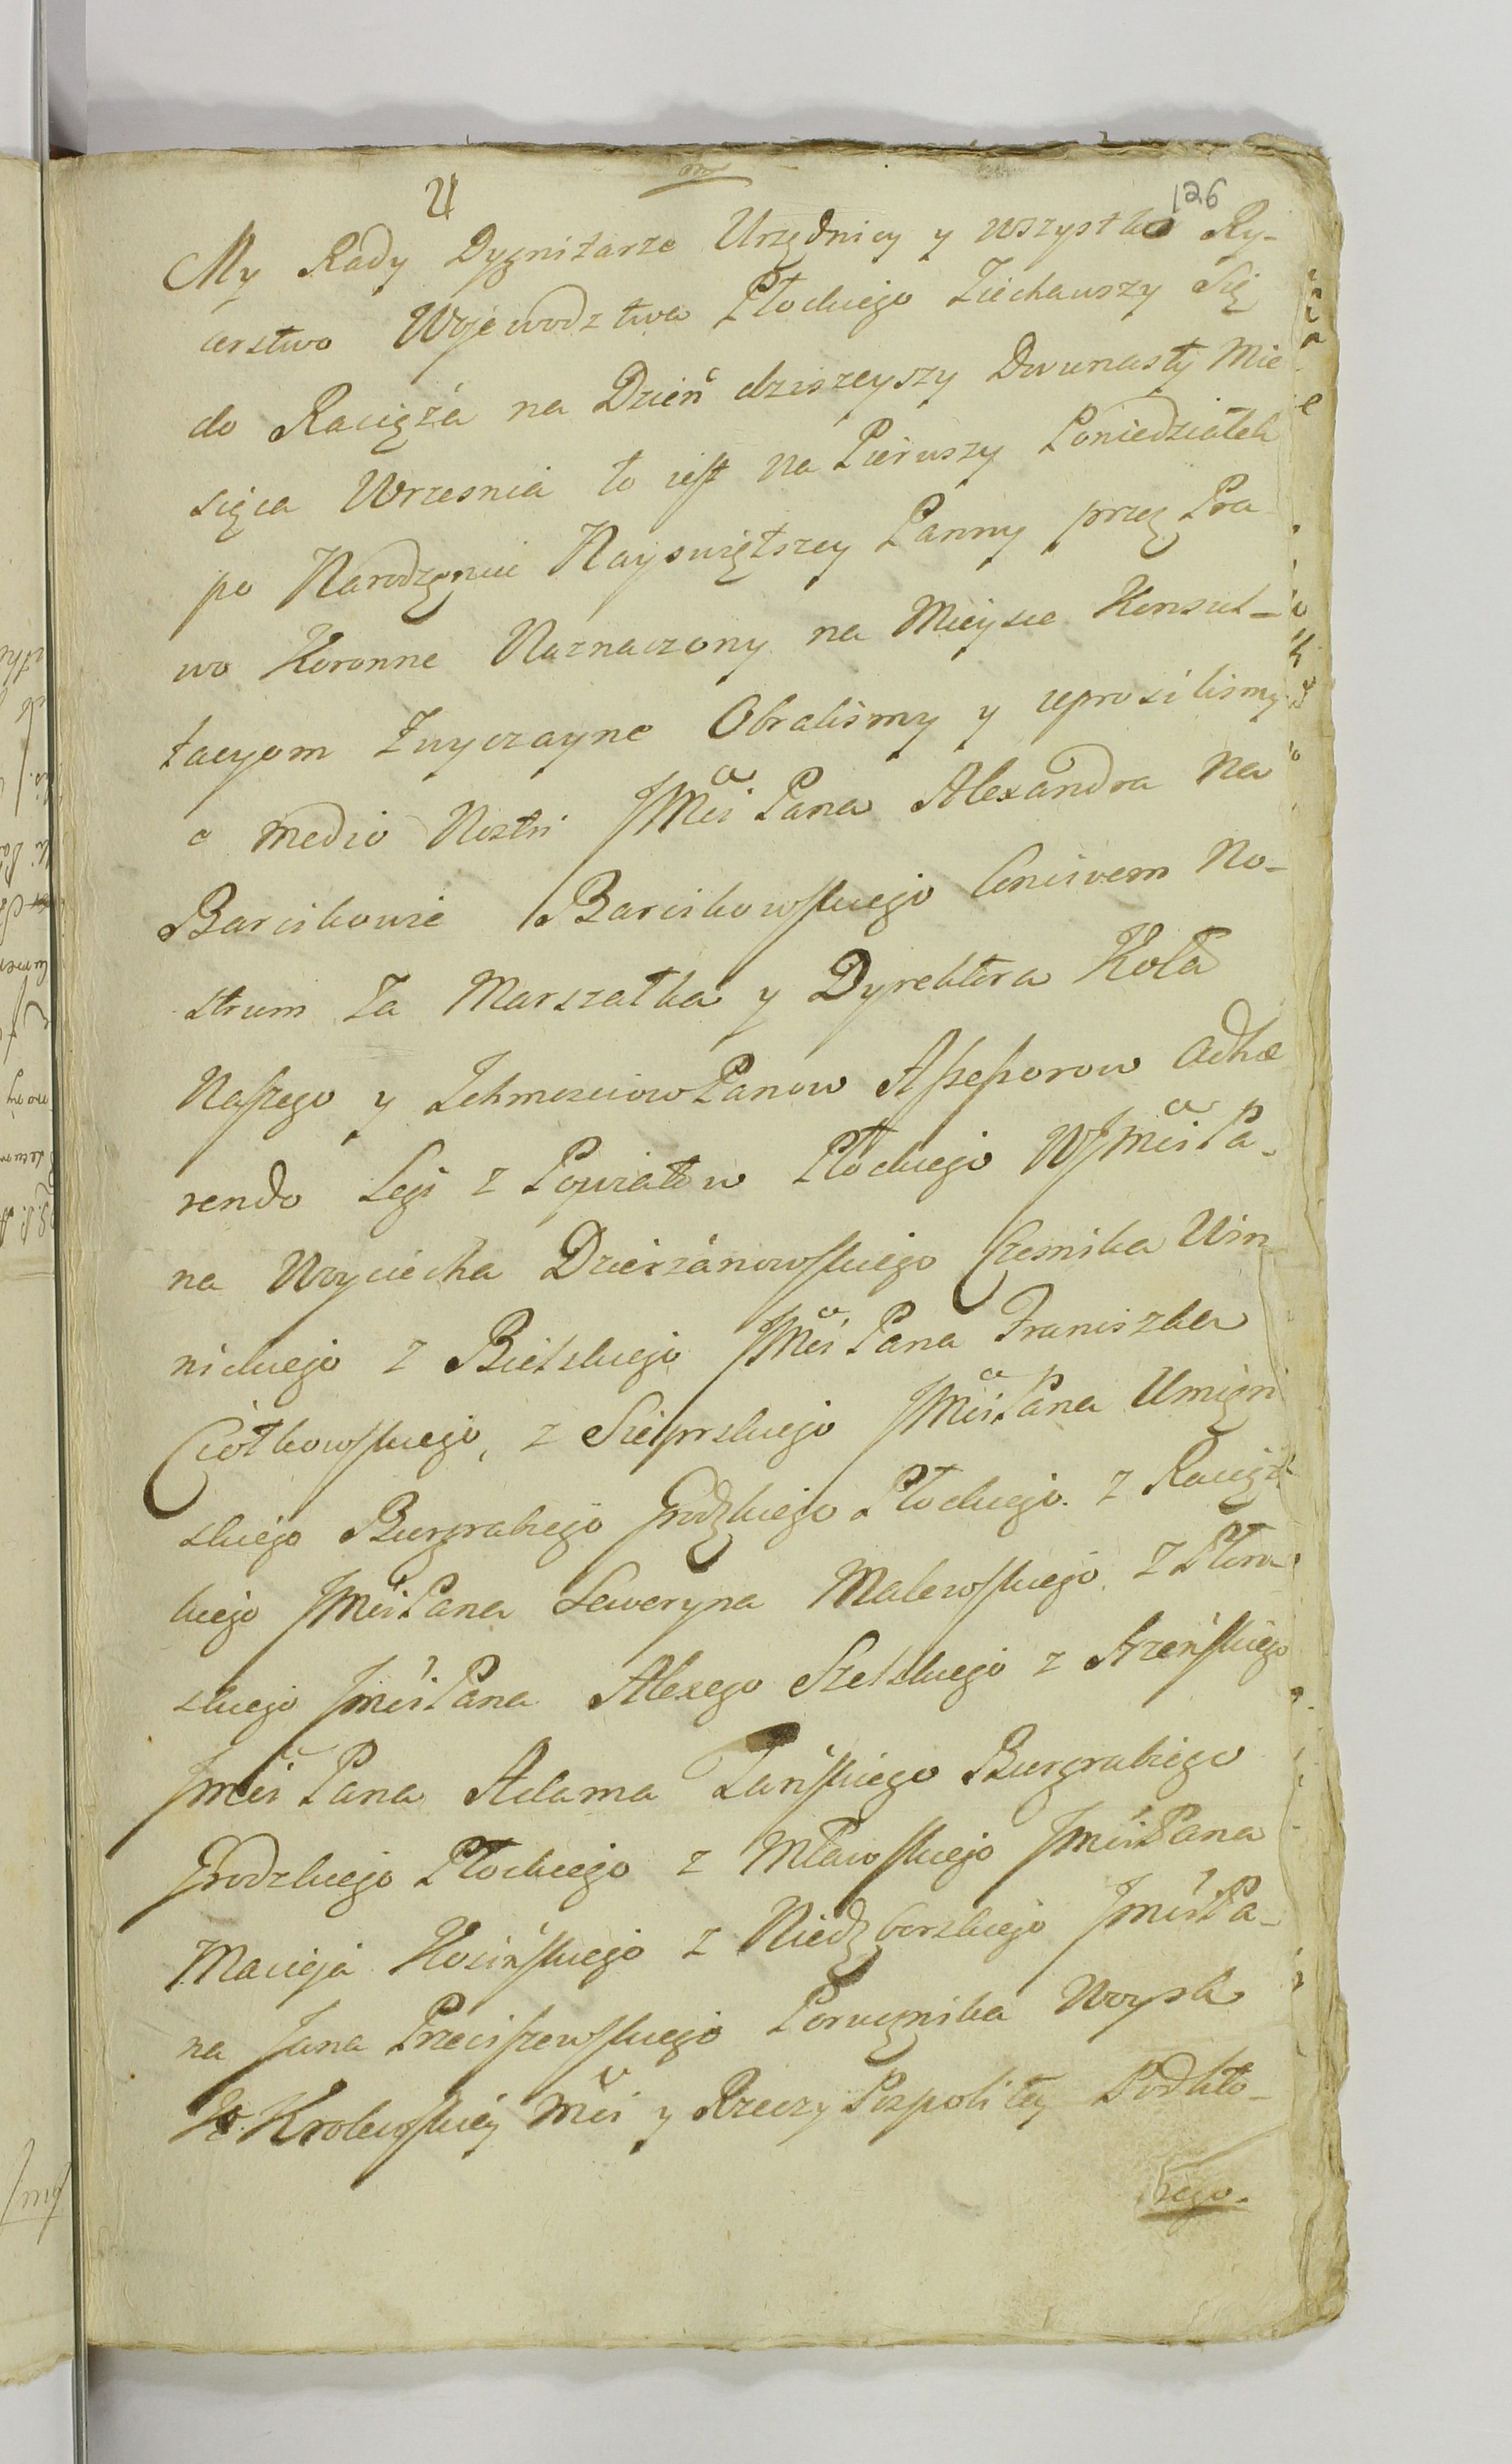 126
My Rady Dygnitarze Urzędnicy y wszystko Ry-
cerstwo Wojewodztwa Płockiego Ziechawszy Się
do Raciąża na Dzień dzisieyszy Dwunasty Mie
siąca Wrzesnia to iest na Pierwszy Poniedziałek
po Narodzeniu Nayswiętszey Panny przez Pra
wo Koronne Naznaczony na Mieysce Konsul-
tacyom Zwyczayne Obralismy y uprosilismy
e medio Nostri JMci Pana Alexandra Na
Barcikowie Barcikowskiego Concivem No-
strum Za Marszałka y Dyrektora Koła
Naszego y Ichmosciow Panow Assessorow adhæ
rendo Legi z Powiatow Płockiego WJmci Pa-
na Woyciecha Dzierżanowskiego Czesnika Win
nickiego z Bielskiego JMci Pana Franciszka
Ciołkowskiego, z Sieprskiego JMci Pana Umięn
skiego Burgrabiego Grodzkiego Płockiego. z Raciąż
kiego JMci Pana Seweryna Malewskiego. z Płon
skiego Jmci Pana Alexego Szelskiego z Szrenskiego
Jmci Pana Adama Łańskiego Burgrabiego
Grodzkiego Płockiego z Mławskiego Jmci Pana
Macieja Kosinskiego z Niedzborskiego Jmci Pa-
na Jana Przeciszewskiego Porucznika Woysk
Krolewskiey Mci y Rzeczy Pospolitey Podkło-
kiego.